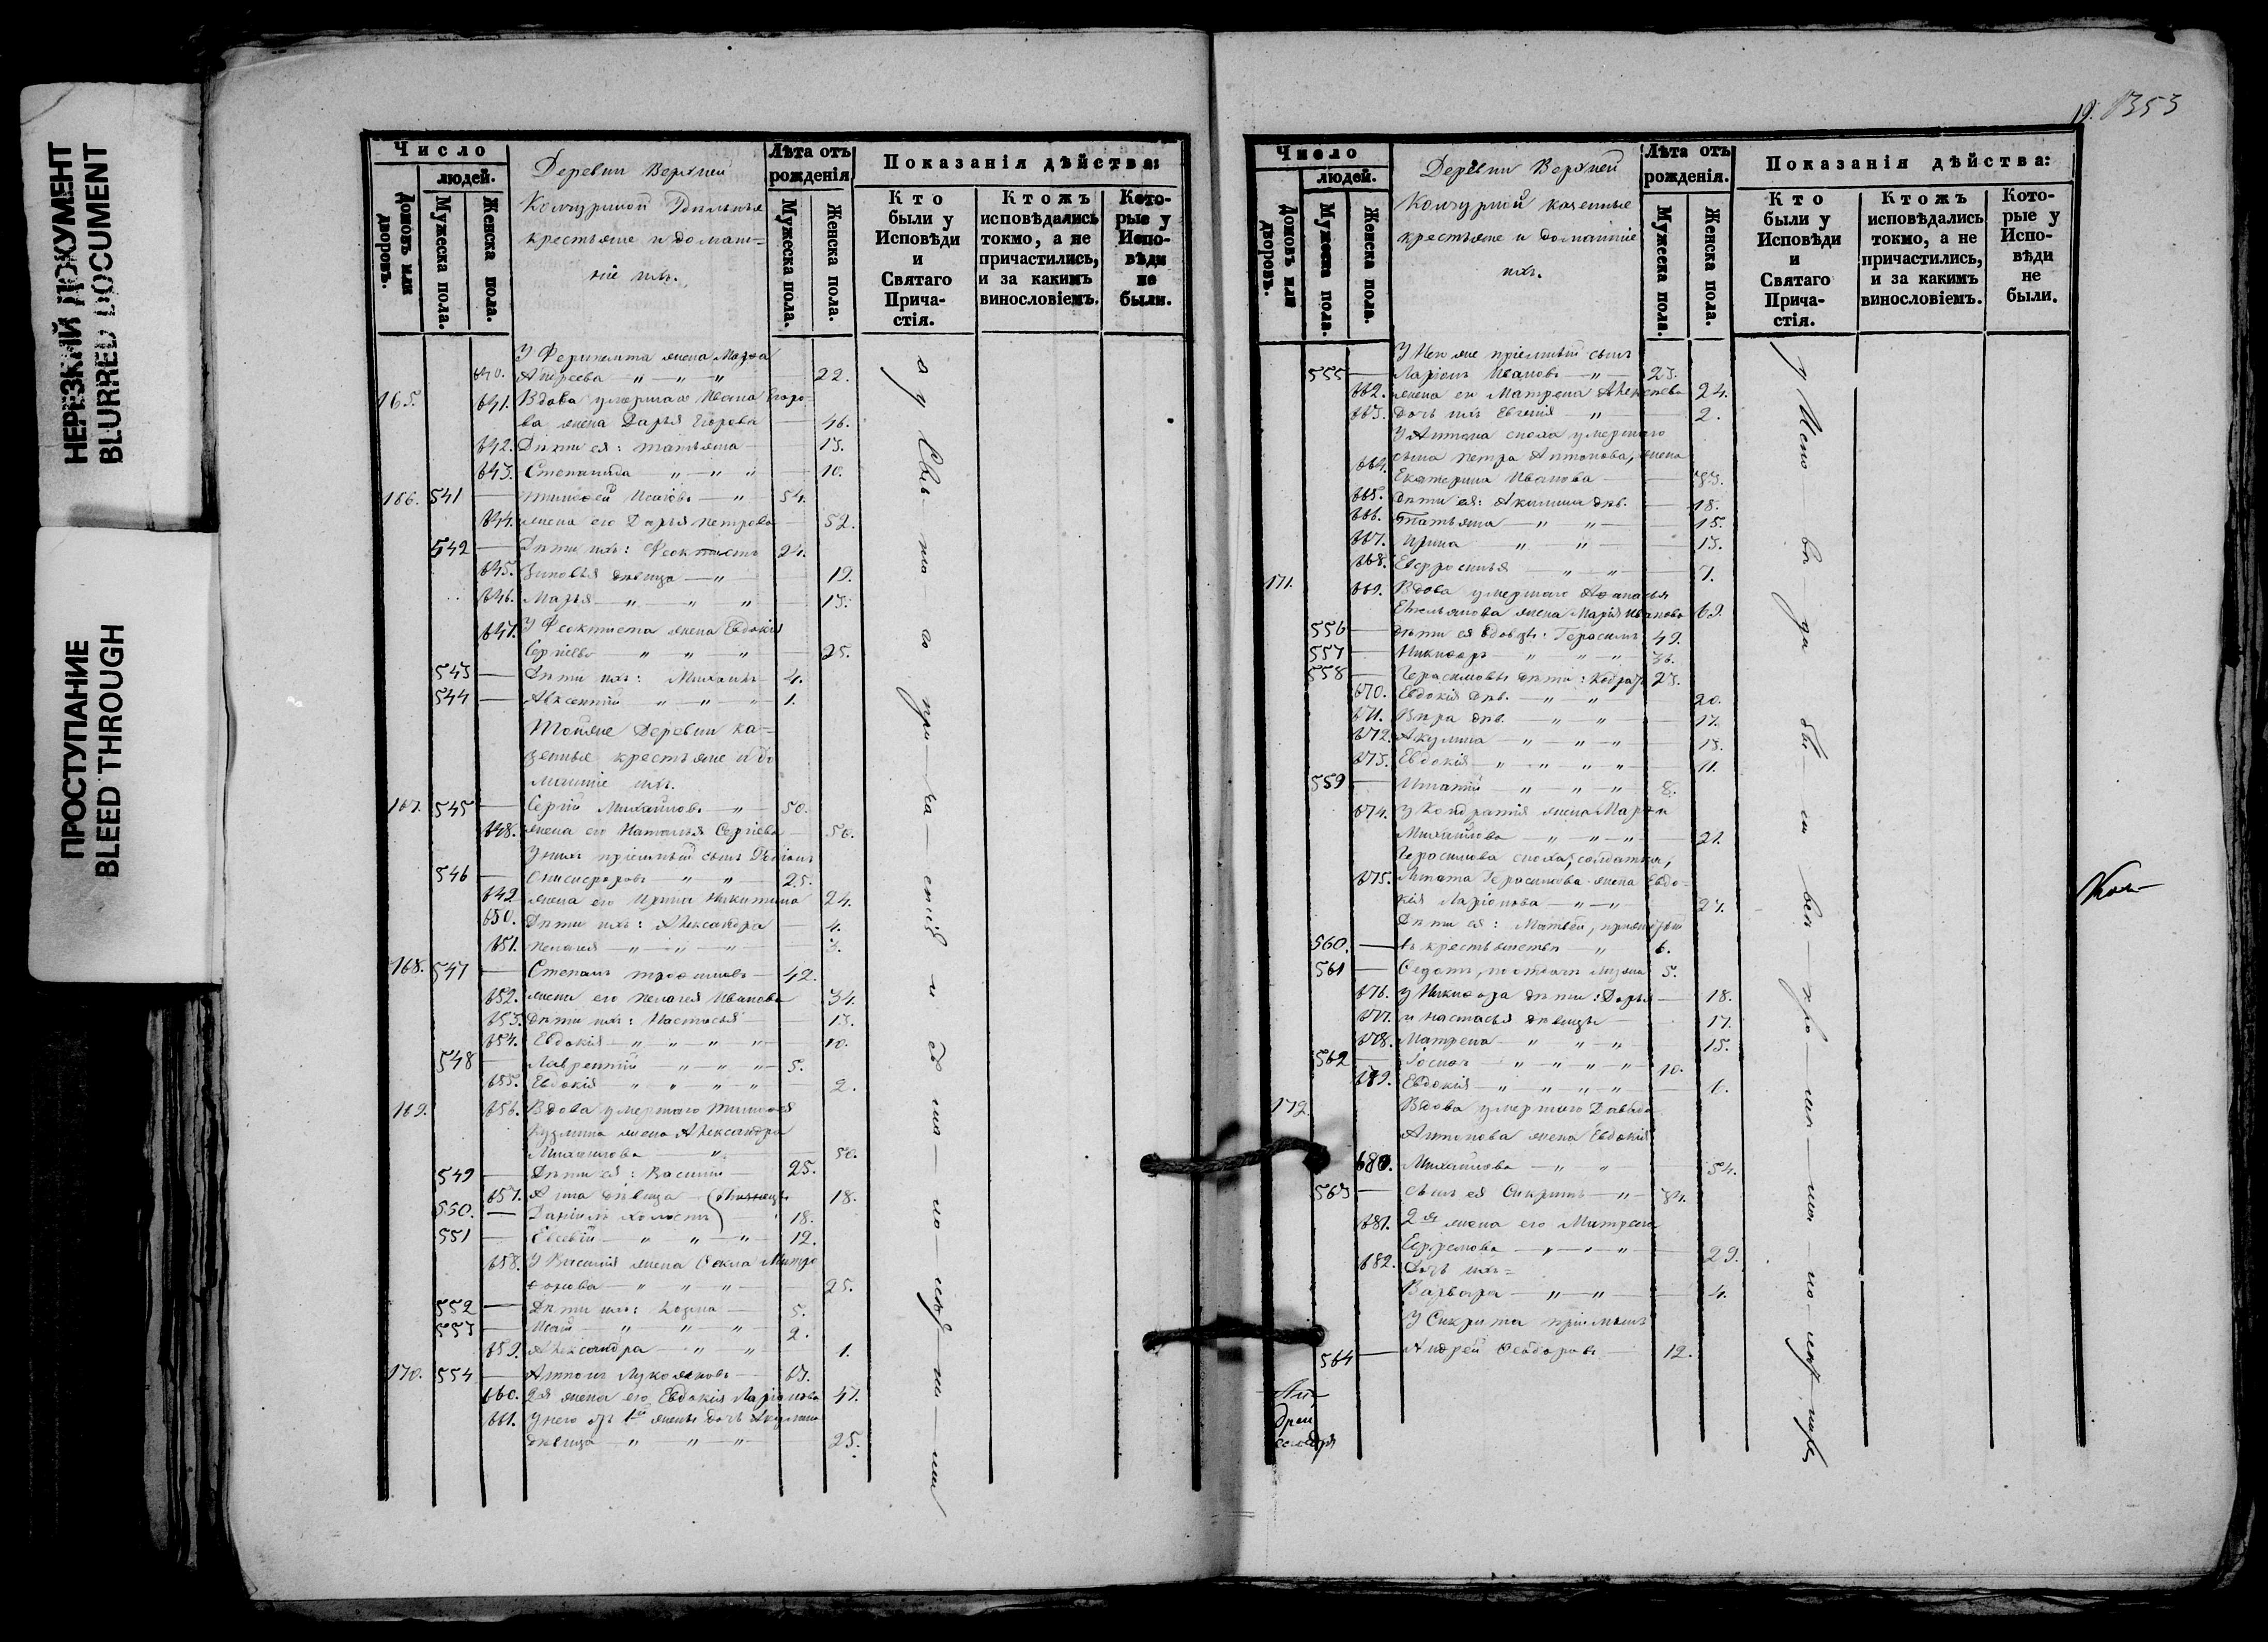 НЕРЕЗКИЙ ДОКУМЕНТ
BLURRED DOCUMENT
ПРОСТУПАНИЕ
BLEED THROUGH
Число
людей.
Домовъ или дворовъ.
Мужеска пола.
Женска пола.
Деревни Верхней
крестьяне и домаш=
ніе ихъ.
Лѣта отъ рожденія
Мужеска пола.
Женска пола.
Показанія дѣйства:
Кто были у Исповѣди и Святаго Прича-стія.
Ктожъ исповѣдались токмо, а не причастились, и за какимъ винословіемъ.
Кото-рые у Испо-вѣди не были.
жена Марѳа
640. Андреева — " — " — " 22.
165. 641. Вдова умершаго Ивана Егоро-
ва жена Дарья Егорова — 46.
642. Дѣти ея: Татьяна — 13.
643. Степанида — " — " " — 10.
166. 541 — Тимоѳей Исаіовъ — " — 54.
644. жена его Дарья Петрова — 52.
542 — Дѣти ихъ: Ѳеоктистъ 24.
645. Зиновья дѣвица — " — 19.
646. Марья — " — " " — 13.
647. У Ѳеоктиста жена Евдокія
Сергіева — " " " — 25.
543 — Дѣти ихъ: Михаилъ 4.
544 — Авксентій — " — " — " 1.
Тойже Деревни ка-
зенные крестьяне и до
машніе ихъ.
167. 545 — Сергій Михайловъ — " — 50.
648. жена его Наталья Сергіева — 50.
У нихъ пріемный сынъ Родіонъ
546 — — " — " — 25.
649 жена его Ирина Никитина 24.
650. Дѣти ихъ: Александра — 4.
651. Пелагея — " — " — " — 3.
168. 547 — Степанъ Троѳимовъ — 42.
652. жена его Пелагея Иванова 34.
653. Дѣти ихъ: Настасья — 13.
654. Евдокія — " — " — " — " — 10.
548 — Лаврентій — " — " — " — 5.
655. Евдокія — " " " " — 2.
169. 656. Вдова умершаго Тимоѳея
Кузмина жена Александра
Михайлова — " — 50.
549 — Дѣти ея: Василій — 25.
657. Анна дѣвица — 18.
550. — Даніилъ холостъ — 18.
551 — Евсевій — " — " — " — 12.
658. У Василія жена Ѳекла Митро
ѳанова — " " " — 25.
552 — Дѣти ихъ: Козма — 5.
553 — Исай — " — " — " 2.
659. Александра — " — " — 1.
170. 554 — Антонъ Лукояновъ — 63.
660. 2я жена его Евдокія Ларіонова 47.
661. У него отъ 1й жены дочь Акулина
дѣвица — " — " — " — 25.
19. 353
Число
людей.
Домовъ или дворовъ.
Мужеска пола.
Женска пола.
Деревни Верхней
казенные
крестьяне и домашніе
ихъ.
Лѣта отъ рожденія.
Мужеска пола.
Женска пола.
Показанія дѣйства:
Кто были у Исповѣди и Святаго Прича-стія.
Ктожъ исповѣдались токмо, а не причастились, и за какимъ винословіемъ.
Кото-рые у Испо-вѣди не были.
У Нея же пріемный сынъ
555 — Ларіонъ Ивановъ — " — 23.
662. жена его Матрена Алексѣева 24.
663. Дочь ихъ Евгенія — " — 2.
У Антона сноха умершаго
664. сына Петра Антонова, жена
Екатерина Иванова — 33.
665. Дѣти ея: Акилина дѣв. — 18.
666. Татьяна — " " — 15.
667. Ирина " " — 13.
668. Евфросинья — " — " — 7.
171. 669. Вдова умершаго Аѳанасья
Емельянова жена Марія Иванова 69.
556 — Дѣти ея вдовцы: Герасимъ 49.
557 — Никифоръ — " " — " 36.
558 — Герасимовы дѣти: 23.
670. Евдокія дѣв. — " — " — 20.
671. Вѣра дѣв. — " — " — 17.
672. Акулина — " — " — " — 13.
673. Евдокія — " — " " " — 11.
559 — Игнатій — " — " — " 8.
674. У Кондратія жена Марѳа
Михайлова — " " " — 21.
Герасимова сноха, солдатка,
675. Игната Герасимова жена Евдо-
кія Ларіонова — " — " — 27.
Дѣти ея: Матвей,
560. — въ крестьянствѣ — " — 6.
561 — 5.
676. У Никифора дѣти: Дарья — 18.
677. и Настасья дѣвицы — 17.
678. Матрена — " " " — 15.
562 — " " " " — 10.
679. Евдокія — " " " " — 6.
172. Вдова умершаго Давыда
Антонова жена Евдокія
680. Михайлова — " " — 54.
563 — сынъ ея — " — 34.
681. 2я жена его Матрена
Ефремова — " — " — " — 29.
682. Дочь ихъ =
Варвара — " — " — 4.
пріемышъ
564 — Андрей Ѳеодоровъ — 12.